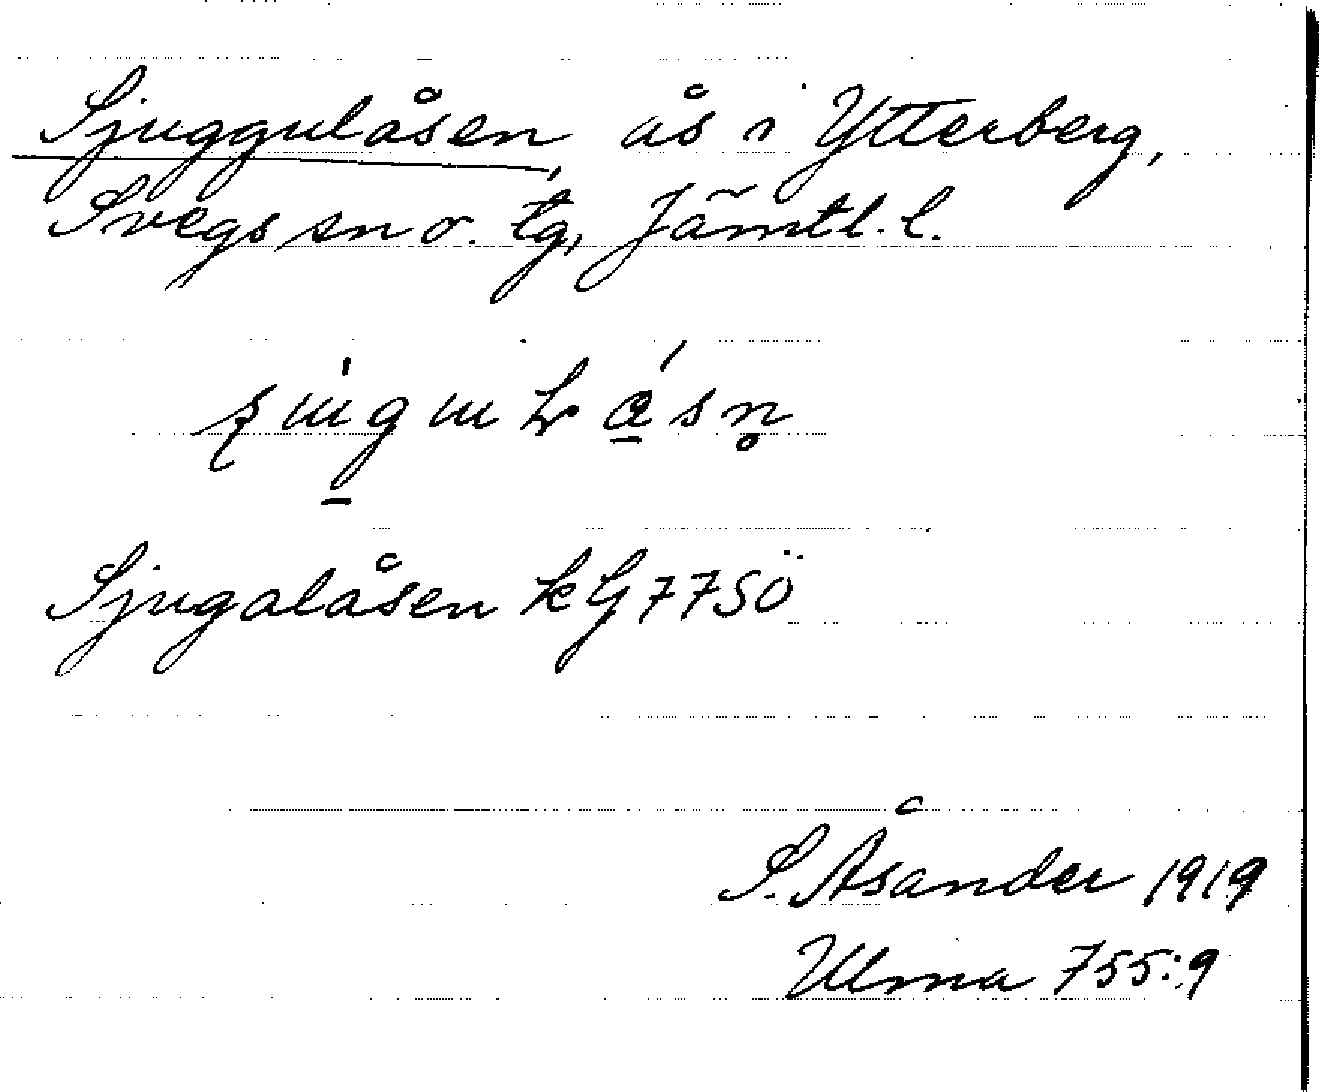 Sjuggulåsen, ås i Ytterberg,
Svegs sn o. tg, Jämtl. l.
Sjugalåsen kG 77SÖ
S. Åsander 1919
Ulma 755:9